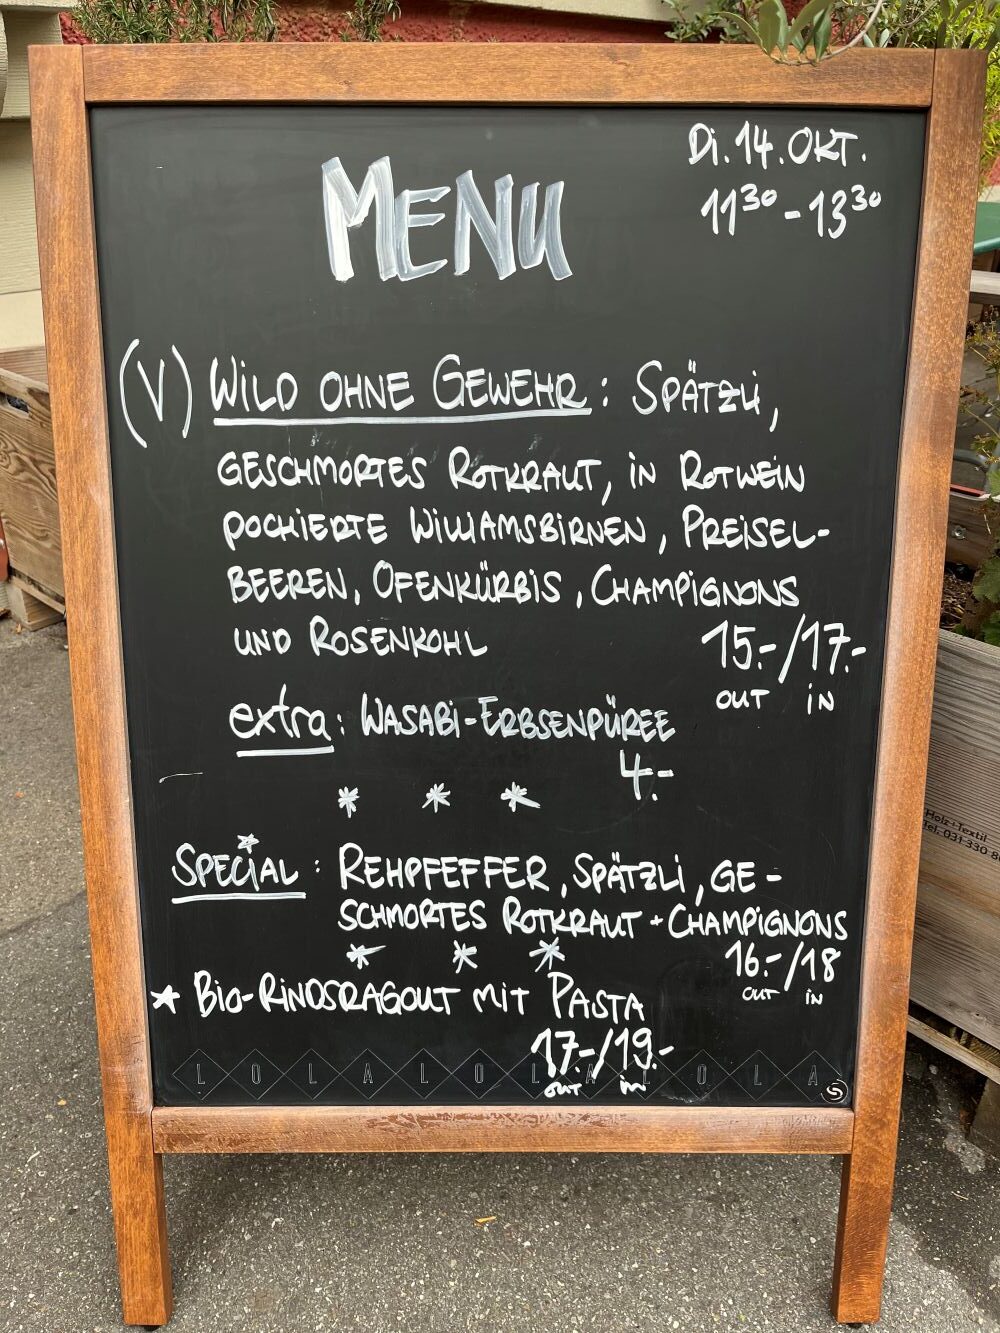 Di. 14. OKT.
11³⁰ - 13³⁰
MENU
(V) WILD OHNE GEWEHR : SPÄTZLI,
GESCHMORTES ROTKRAUT, IN ROTWEIN
POCHIERTE WILLIAMSBIRNEN, PREISEL-
BEEREN, OFENKÜRBIS, CHAMPIGNONS
UND ROSENKOHL
15.-/17.-
OUT IN
extra: WASABI-ERBSENPÜREE
4.-
* * *
SPECIAL : REHPFEFFER, SPÄTZLI, GE-
SCHMORTES ROTKRAUT + CHAMPIGNONS
* * *
16.-/18
OUT IN
* BIO-RINDSRAGOUT MIT PASTA
17.-/19.-
OUT IN
LOLALOLALOLA
Holz+Textil
Tel. 031 330 8